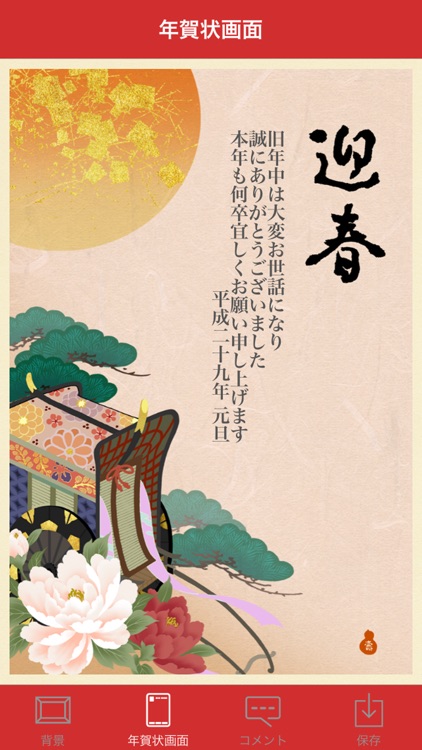 年賀状画面
迎春
旧年中は大変お世話になり
誠にありがとうございました
本年も何卒宜しくお願い申し上げます
平成二十九年 元旦
背景
年賀状画面
コメント
保存